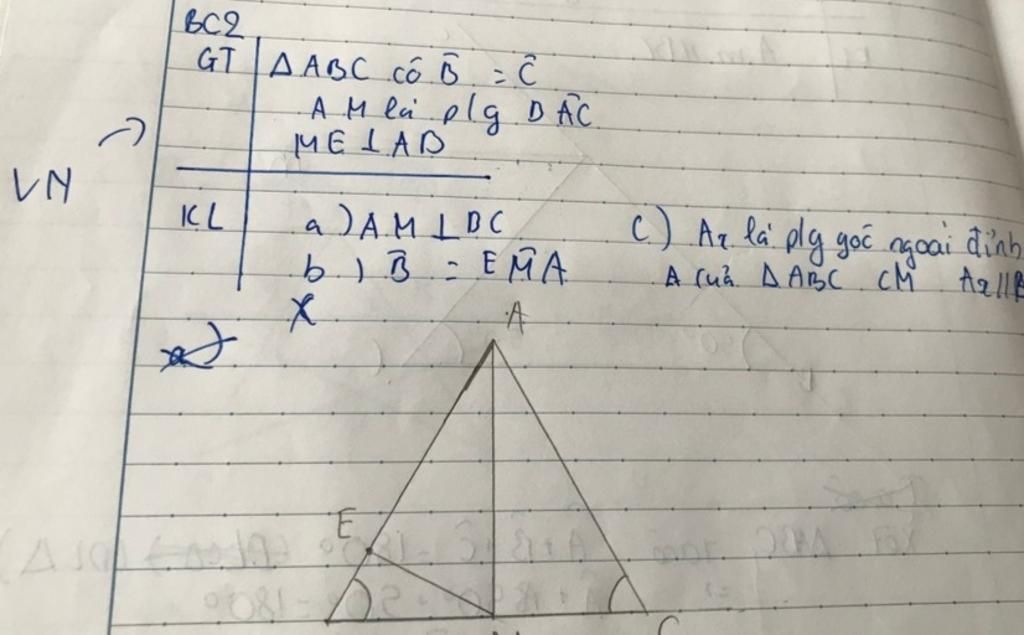 BC2
GT ΔABC có B̂ = Ĉ
AM là plg BÂC
ME ⊥ AB
VN
KL a) AM ⊥ BC
b) B̂ = EM̂A
c) Az là plg góc ngoài đỉnh
A của ΔABC CM Az //
x
A
E
C